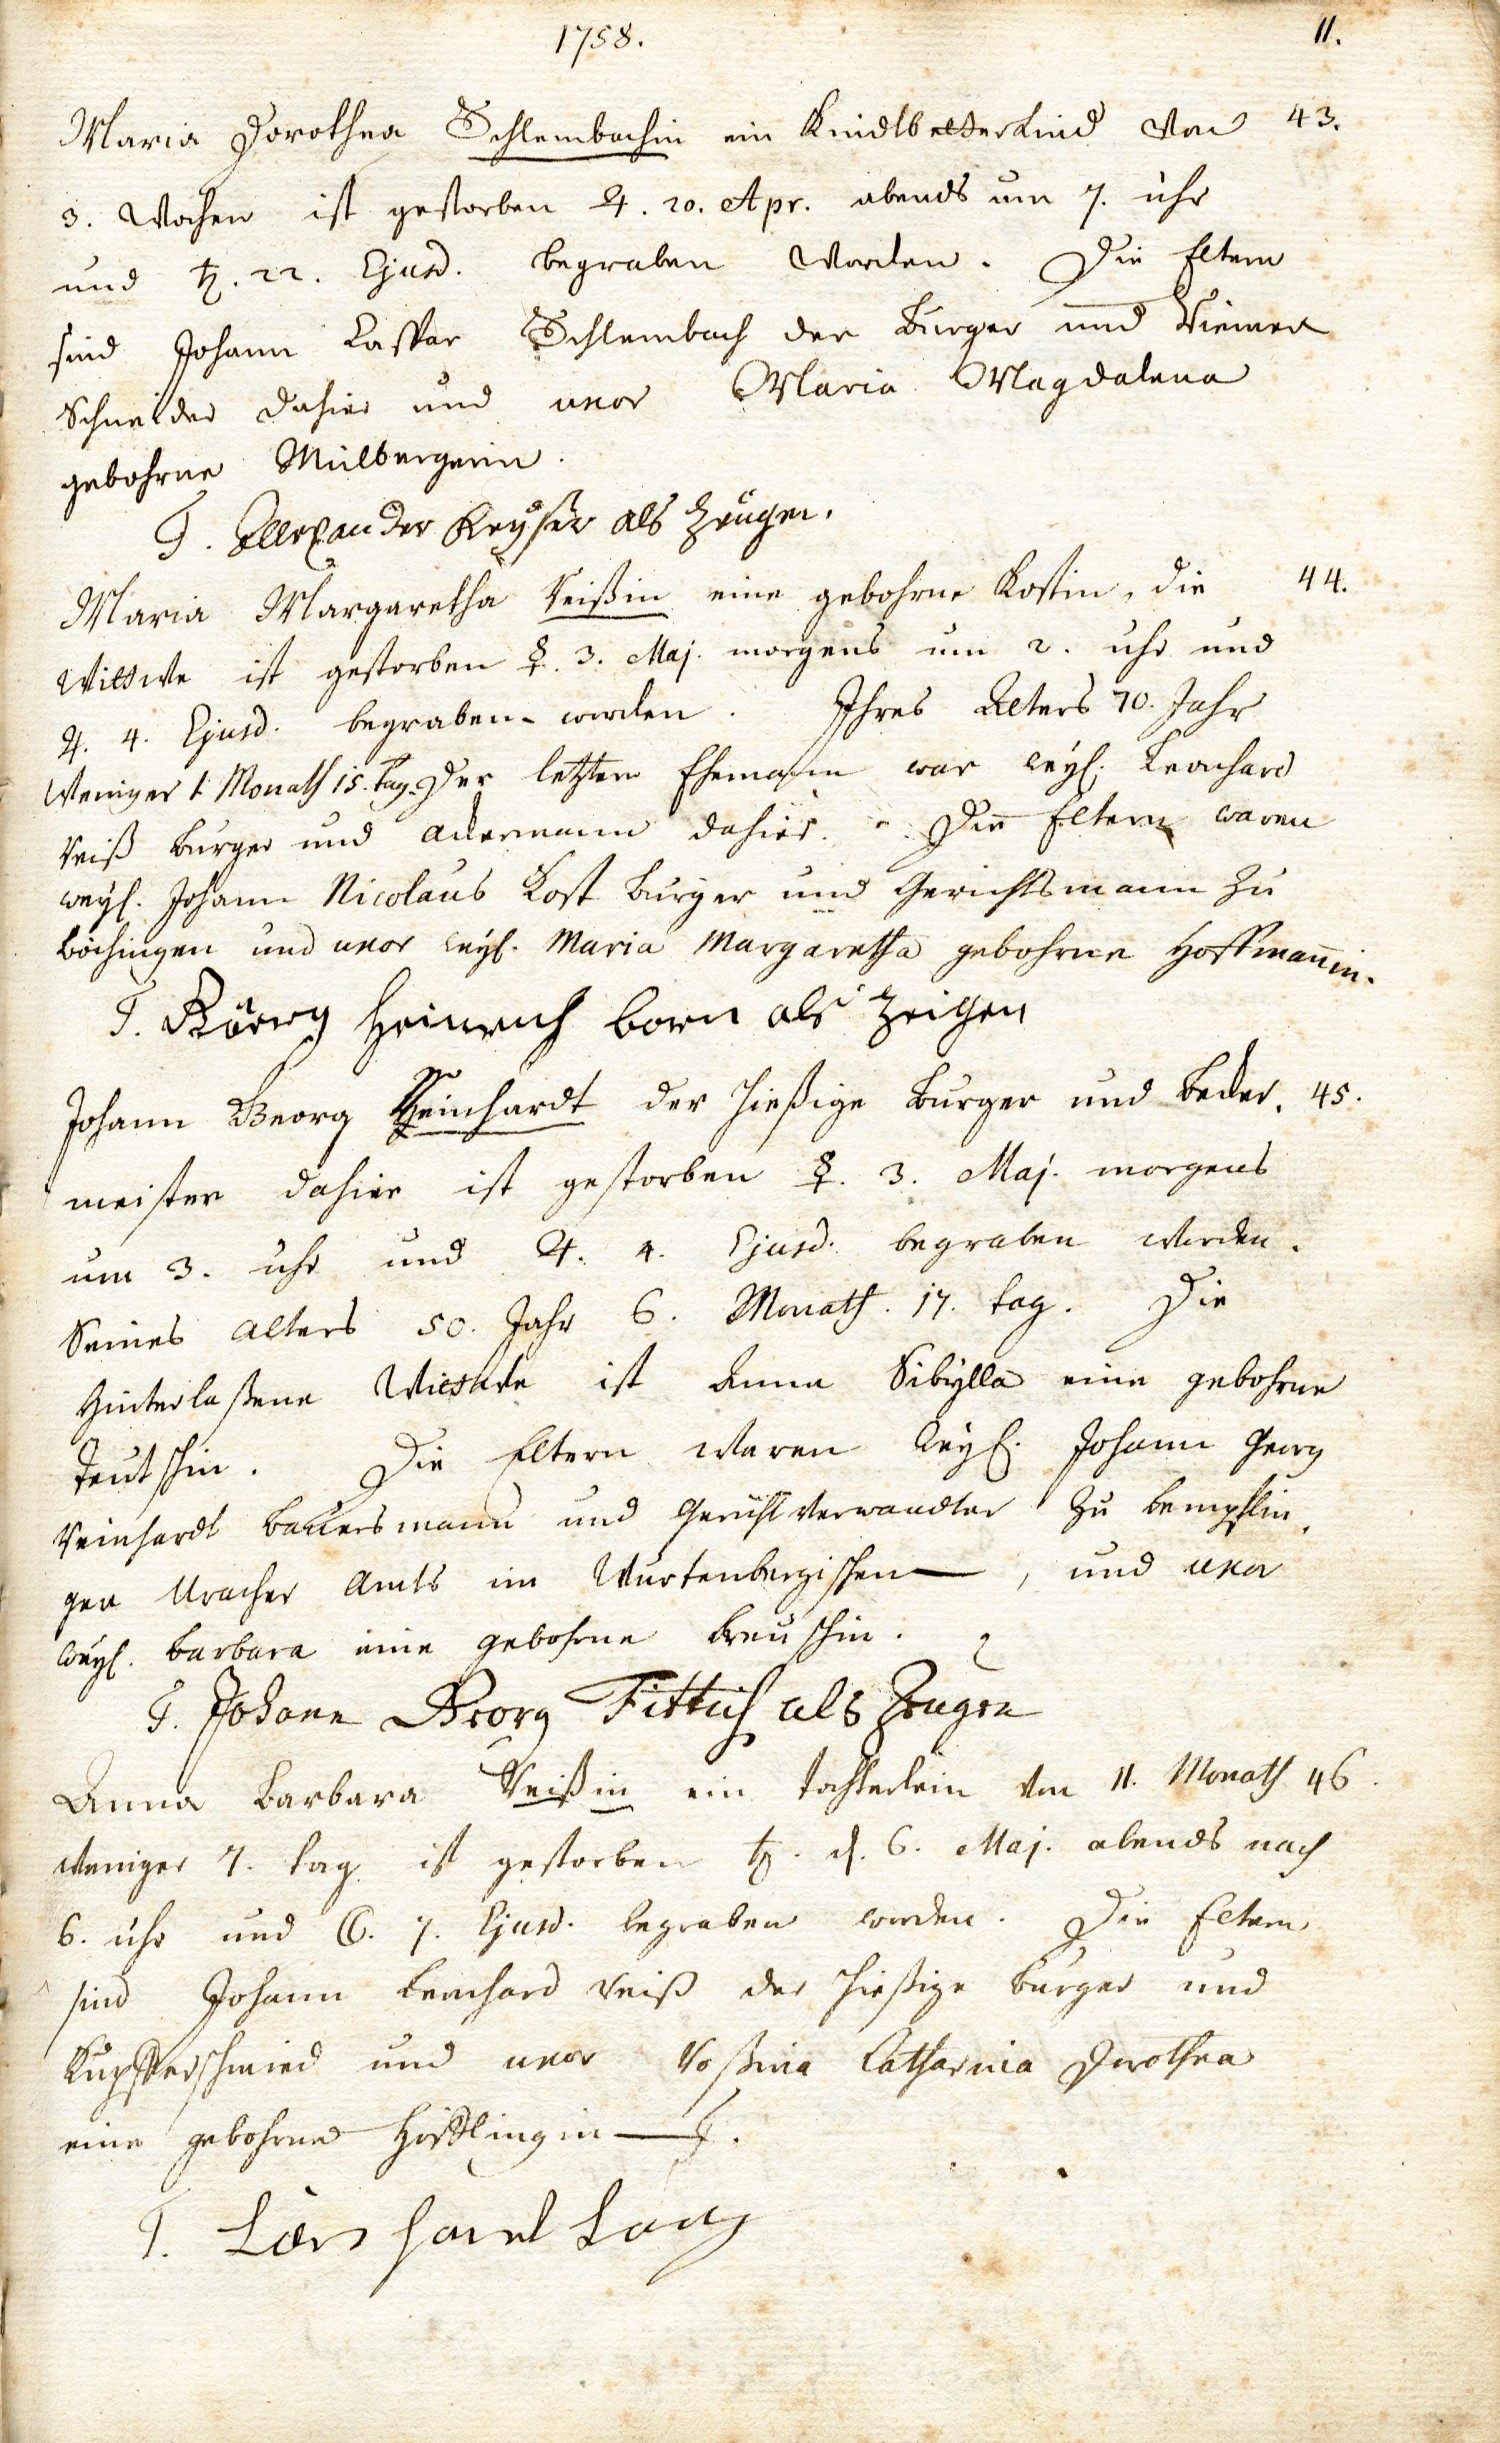 1758. 11.
Maria Dorothea Schlembachin ein Kindlbetterkind von 43.
3. Wochen ist gestorben ♃. 20. Apr. abends um 7. uhr
und ♄. 22. Ejusd. begraben worden. Die Eltern
sind Johann Caspar Schlembach der Burger und Riemen
Schneider dahier und uxor Maria Magdalena
gebohrne Mülbergerin.
T. Allexander Keyser als Zeugen.
Maria Margaretha Veißin eine gebohrne Kostin, die 44.
Wittwe ist gestorben ☿. 3. Maj. morgens um 2. uhr und
♃. 4. Ejusd. begraben worden. Ihres Alters 70. Jahr
Weniger 1. Monath 15. tag. Der letztere Ehemann war weyl. Leonhard
Veiß burger und ackermann dahier. Die Eltern waren
weyl. Johann Nicolaus Kost burger und Gerichtsmann zu
böchingen und uxor weyl. Maria Margaretha gebohrne Hoffmannin.
T. Görg Heinrich born als Zeigen
Johann Georg Veinhardt der hießige Burger und Becker 45.
meister dahier ist gestorben ☿. 3. Maj. morgens
um 3. uhr und ♃. 4. Ejusd. begraben worden.
Seines alters 50. Jahr 6. Monath. 17. tag. Die
Hinterlaßene Wittwe ist Anna Sibylla eine gebohrne
Teutschin. Die Eltern waren weyl. Johann Georg
Veinhardt bauersmann und Gericht Verwandter zu bempflin
gen Uracher Amts im Würtenbergischen, und uxor
weyl. barbara eine gebohrne breuschin.
T. Johann Georg Fittich als Zeugen
Anna Barbara Veißin ein tochterlein von 11. Monath 46.
weniger 7. tag ist gestorben ♄. d. 6. Maj. abends nach
6. uhr und 7. Ejusd. begraben worden. Die Eltern
sind Johann Leonhard Veiß der hießige burger und
Kupfferschmied und uxor Roßina Catharina Dorothea
eine gebohrne
T. Lang